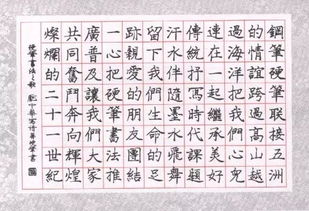 鋼筆硬筆聯接五洲
的情誼跨過高山越
過海洋把我們心兒
連在一起繼承美好
傳統抒寫時代課題
汗水伴隨墨水飛舞
留下我們生命的足
跡親愛的朋友團結
一心把硬筆書法推
廣普及讓我們大家
共同奮鬥奔向輝煌
燦爛的二十一世紀
書法之歌